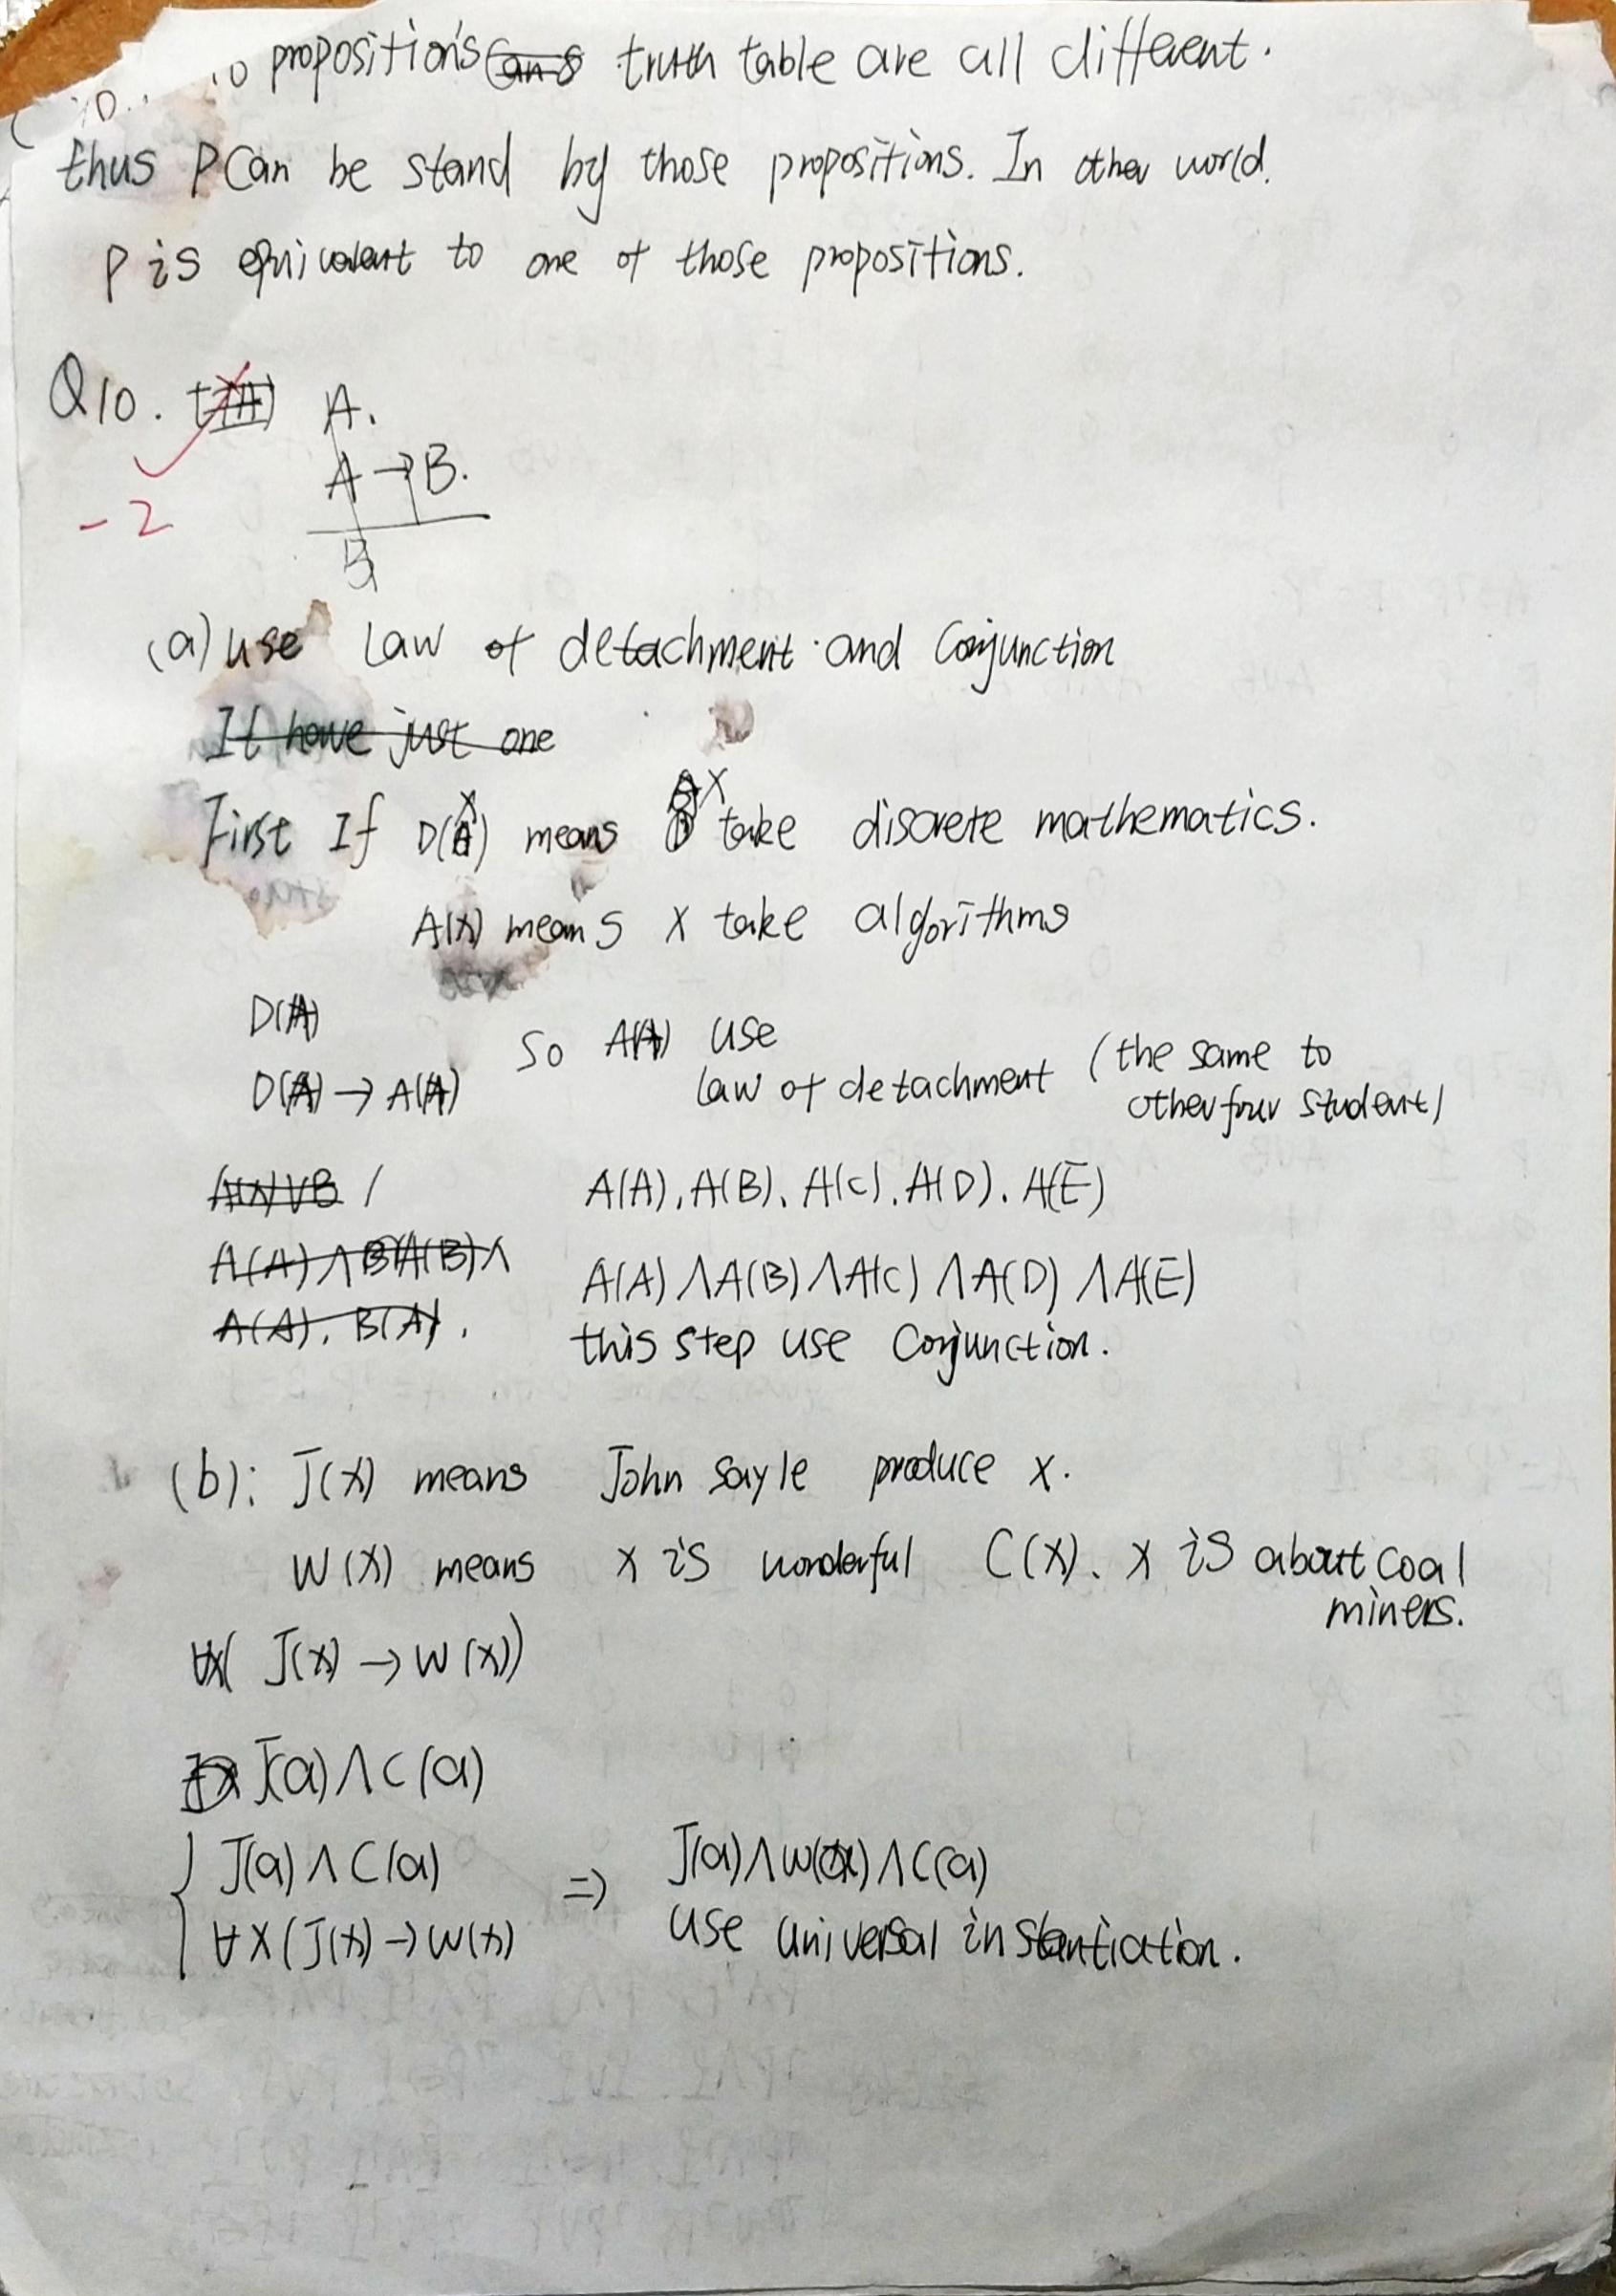 propositions truth table are all different.
thus P Can be stand by those propositions. In other world.
P is equivalent to one of those propositions.
Q10. A.
A → B.
-2
B
(a) use Law of detachment and Conjunction
It have just one
First If D(x) means x take discrete mathematics.
A(x) means x take algorithms
D(A)
So A(A) use
D(A) → A(A) law of detachment (the same to
other four student)
A(A), A(B), A(C), A(D), A(E)
A(A) ∧ B A(B) ∧
A(A) ∧ A(B) ∧ A(C) ∧ A(D) ∧ A(E)
A(A), B(A),
this step use Conjunction.
(b): J(x) means John Sayle produce x.
W(x) means x is wonderful C(x). x is about coal
miners.
∀x( J(x) → W(x))
J(a) ∧ C(a)
J(a) ∧ C(a) => J(a) ∧ W(a) ∧ C(a)
∀x(J(x) → W(x) use universal instantiation.